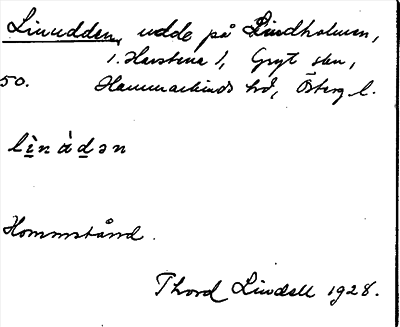 Linudden, udde på Lindholmen,
1. Harstena 1, Gryt skn,
50. Hammarkinds hd, Österg l.
lìnàdən
Hommstånd.
Thord Lindell 1928.